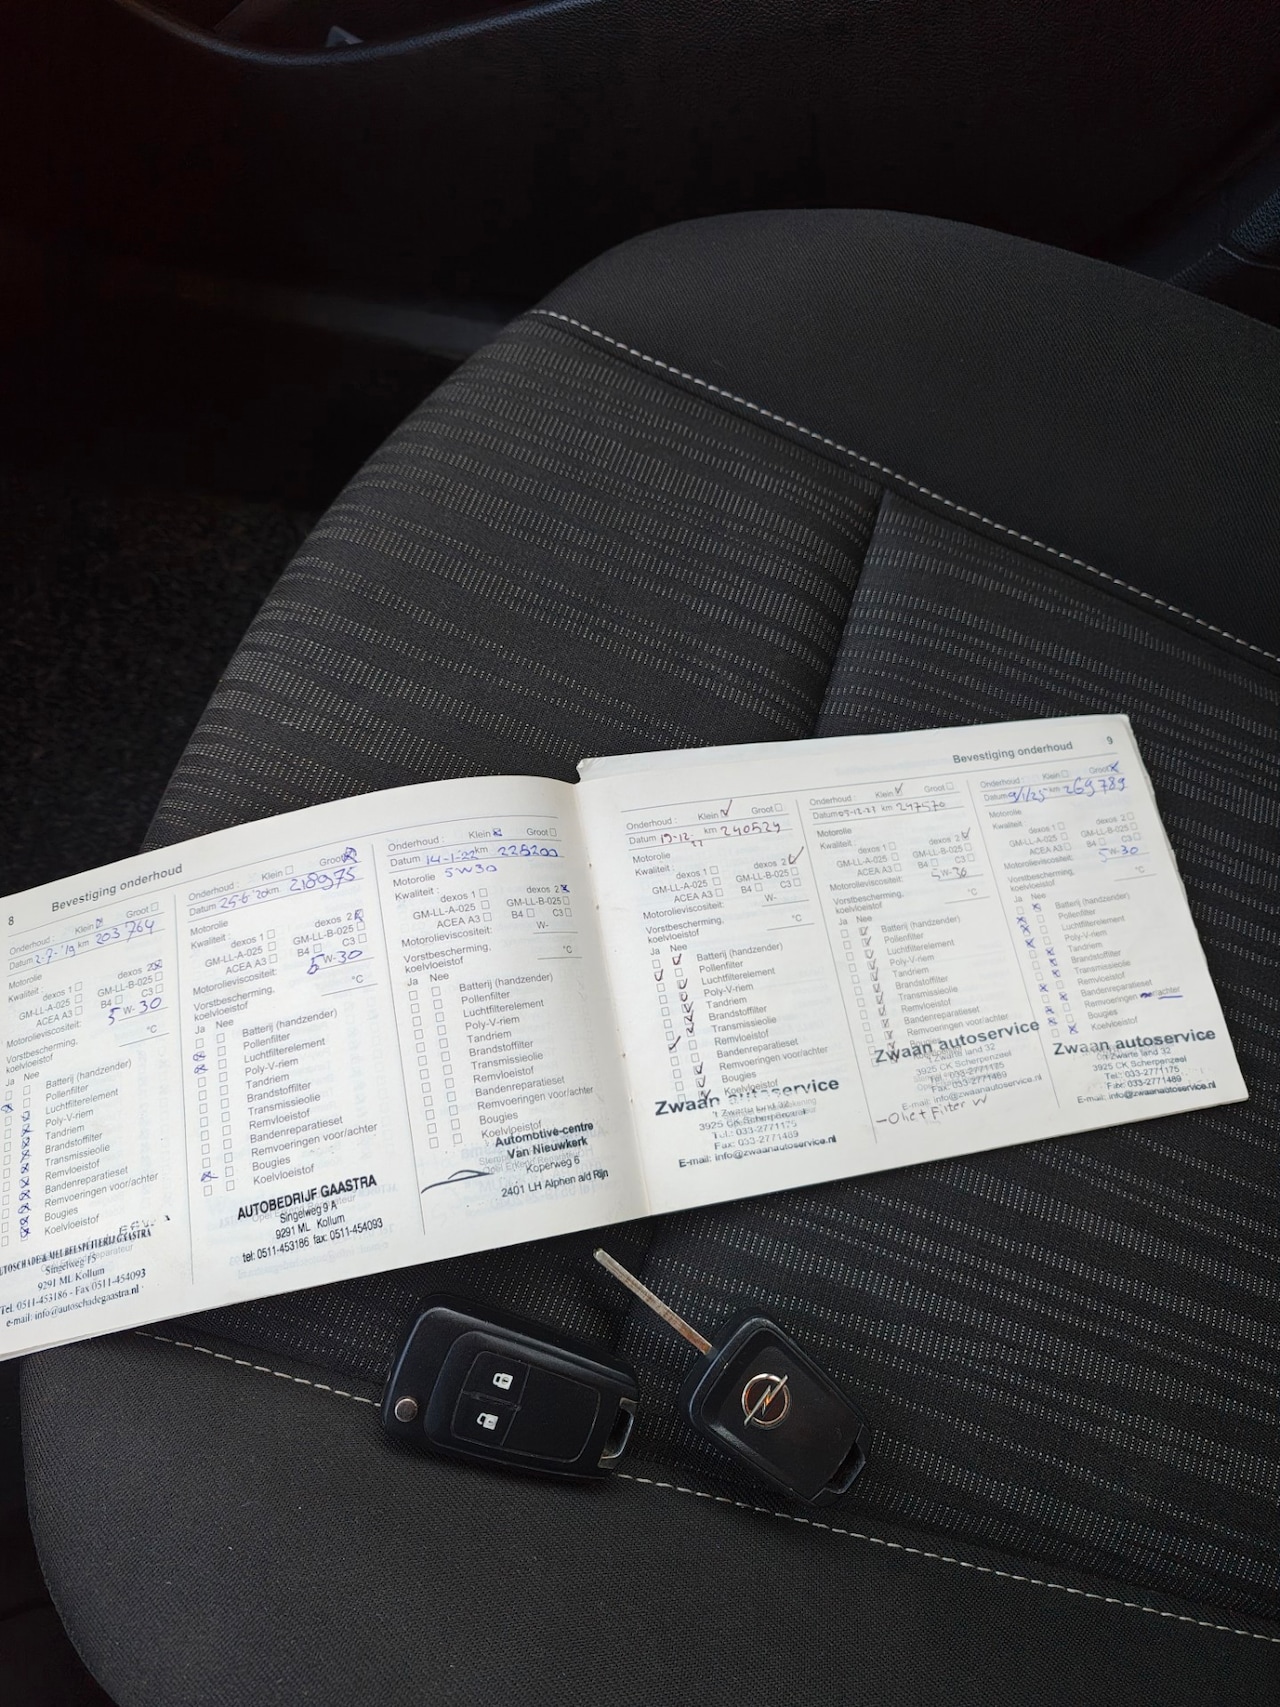 8 Bevestiging onderhoud
Onderhoud : Klein Groot
Datum 2-7-'19 km 203764
Motorolie
Kwaliteit : dexos 1 dexos 2
GM-LL-A-025 GM-LL-B-025
ACEA A3 B4 C3
Motorolieviscositeit: 5 W- 30
Vorstbescherming,
koelvloeistof °C
Ja Nee
Batterij (handzender)
Pollenfilter
Luchtfilterelement
Poly-V-riem
Tandriem
Brandstoffilter
Transmissieolie
Remvloeistof
Bandenreparatieset
Remvoeringen voor/achter
Bougies
Koelvloeistof
Singelweg 15
9291 ML Kollum
Tel. 0511-453186 - Fax 0511-454093
e-mail: info@autoschadegaastra.nl
Onderhoud : Klein Groot
Datum 25-6-'20 km 218975
Motorolie
Kwaliteit : dexos 1 dexos 2
GM-LL-A-025 GM-LL-B-025
ACEA A3 B4 C3
Motorolieviscositeit: 5 W- 30
Vorstbescherming,
koelvloeistof °C
Ja Nee
Batterij (handzender)
Pollenfilter
Luchtfilterelement
Poly-V-riem
Tandriem
Brandstoffilter
Transmissieolie
Remvloeistof
Bandenreparatieset
Remvoeringen voor/achter
Bougies
Koelvloeistof
AUTOBEDRIJF GAASTRA
Singelweg 9 A
9291 ML Kollum
tel: 0511-453186 fax: 0511-454093
Onderhoud : Klein Groot
Datum 14-1-22 km 228200
Motorolie 5W30
Kwaliteit : dexos 1 dexos 2
GM-LL-A-025 GM-LL-B-025
ACEA A3 B4 C3
Motorolieviscositeit: W-
Vorstbescherming,
koelvloeistof °C
Ja Nee
Batterij (handzender)
Pollenfilter
Luchtfilterelement
Poly-V-riem
Tandriem
Brandstoffilter
Transmissieolie
Remvloeistof
Bandenreparatieset
Remvoeringen voor/achter
Bougies
Koelvloeistof
Automotive-centre
Van Nieuwkerk
Koperweg 6
2401 LH Alphen a/d Rijn
Bevestiging onderhoud 9
Onderhoud : Klein Groot
Datum 19-12- km 240529
Motorolie
Kwaliteit : dexos 1 dexos 2
GM-LL-A-025 GM-LL-B-025
ACEA A3 B4 C3
Motorolieviscositeit: W-
Vorstbescherming,
koelvloeistof °C
Ja Nee
Batterij (handzender)
Pollenfilter
Luchtfilterelement
Poly-V-riem
Tandriem
Brandstoffilter
Transmissieolie
Remvloeistof
Bandenreparatieset
Remvoeringen voor/achter
Bougies
Koelvloeistof
Zwaan autoservice
't Zwarte land 32
3925 CK Scherpenzeel
Tel.: 033-2771175
Fax: 033-2771489
E-mail: info@zwaanautoservice.nl
Onderhoud : Klein Groot
Datum km 247570
Motorolie
Kwaliteit : dexos 1 dexos 2
GM-LL-A-025 GM-LL-B-025
ACEA A3 B4 C3
Motorolieviscositeit: 5 W- 30
Vorstbescherming,
koelvloeistof °C
Ja Nee
Batterij (handzender)
Pollenfilter
Luchtfilterelement
Poly-V-riem
Tandriem
Brandstoffilter
Transmissieolie
Remvloeistof
Bandenreparatieset
Remvoeringen voor/achter
Bougies
Zwaan autoservice
't Zwarte land 32
3925 CK Scherpenzeel
Tel.: 033-2771175
Fax: 033-2771489
E-mail: info@zwaanautoservice.nl
- Olie + Filter
Onderhoud : Klein Groot
Datum 9/1/25 km 269789
Motorolie
Kwaliteit : dexos 1 dexos 2
GM-LL-A-025 GM-LL-B-025
ACEA A3 B4 C3
Motorolieviscositeit: 5 W- 30
Vorstbescherming,
koelvloeistof °C
Ja Nee
Batterij (handzender)
Pollenfilter
Luchtfilterelement
Poly-V-riem
Tandriem
Brandstoffilter
Transmissieolie
Remvloeistof
Bandenreparatieset
Remvoeringen voor/achter
Bougies
Koelvloeistof
Zwaan autoservice
't Zwarte land 32
3925 CK Scherpenzeel
Tel.: 033-2771175
Fax: 033-2771489
E-mail: info@zwaanautoservice.nl